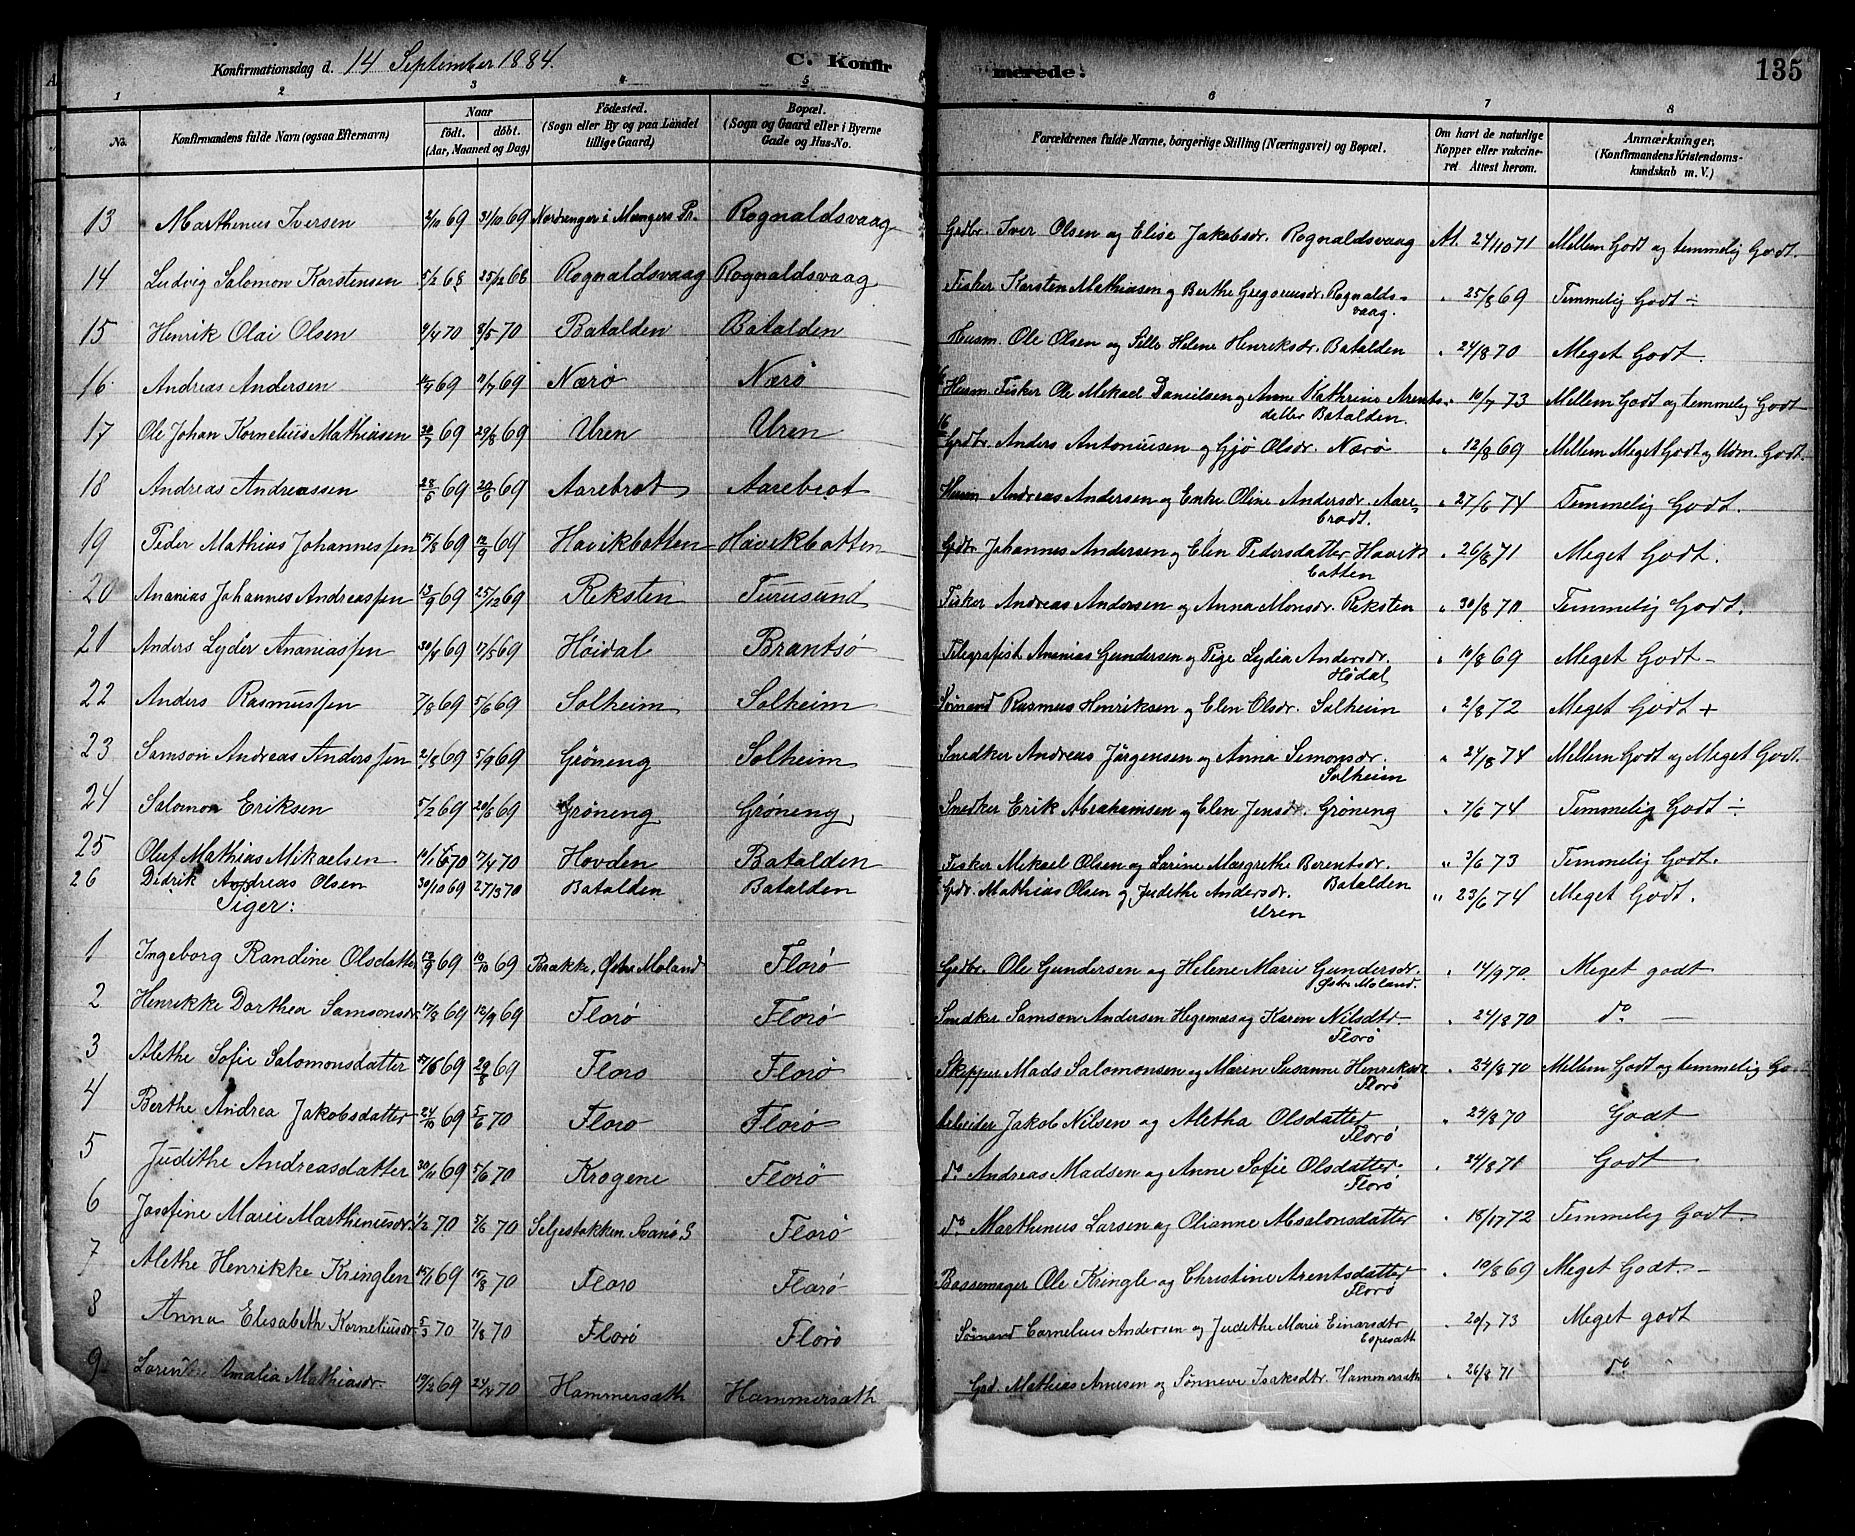 Konfirmationsdag d. 14 September 1884. C. Konfirmerede. 135
1 2 3 4 5 6 7 8
No. Konfirmandens fulde Navn (ogsaa Efternavn) Naar födt. döbt. (Aar, Maaned og Dag) Födested. (Sogn eller By og paa Landet tillige Gaard) Bopæl. (Sogn og Gaard eller i Byerne Gade og Hus-No. Forældrenes fulde Navne, borgerlige Stilling (Næringsvei) og Bopæl. Om havt de naturlige Kopper eller vakcineret Attest herom. Anmærkninger, (Konfirmandens Kristendomskundskab m. V.)
13 Marthenus Iversen 2/10 69 31/10 69 Nordanger i Mangers Pr. Rognaldsvaag Gdbr. Iver Olsen og Elise Jakobsdr. Rognaldsvaag At. 24/10 71 Mellem Godt og temmelig Godt.
14 Ludvig Salomon Karstensen 5/2 68 25/12 68 Rognaldsvaag Rognaldsvaag Fisker Karsten Mathiasen og Berthe Gregoriusdr. Rognaldsvaag. " 25/8 69 Temmelig Godt ÷
15 Henrik Olai Olsen 4/4 70 8/5 70 Batalden Batalden Husm. Ole Olsen og Sille Helene Henriksdr. Batalden " 24/8 70 Meget Godt.
16 Andreas Andersen 69 11/7 69 Nærö Nærö Husm. Fisker Ole Mekael Danielsen og Anne Kathrine Arentsdatter Batalden. " 10/7 73 Mellem Godt og temmelig Godt
17 Ole Johan Kornelius Mathiasen 30/7 69 29/8 69 Uren Uren 16 Grdbr. Anders Antoniusen og Gjö Olsdr. Nærö " 12/8 69 Mellem Meget Godt og Udm. Godt.
18 Andreas Andreassen 28/5 69 69 Aarebrot Aarebrot Husm Andreas Andersen og Enke Oline Andersdr. Aarebrodt. " 27/6 74 Temmelig Godt.
19 Peder Mathias Johannessen 15/8 69 12/9 69 Havikbotten Havikbotten Gdbr. Johannes Andersen og Elen Pedersdatter Havikbotten " 26/8 71 Meget Godt.
20 Ananias Johannes Andreassen 13/9 69 25/12 69 Reksten Furusund Fisker Andreas Andersen og Anna Monsdr. Reksten " 30/8 70 Temmelig Godt.
21 Anders Lyder Ananiassen 69 17/5 69 Höidal Brantsö Telegrafist Ananias Gundersen og Pige Lydia Andersdr. Hödal " 10/8 69 Meget Godt -
22 Anders Rasmussen 7/3 69 5/6 69 Solheim Solheim Sömand Rasmus Henriksen og Elen Olsdr. Solheim " 2/8 72 Meget Godt +
23 Samson Andreas Anderssen 69 5/9 69 Gröneng Solheim Snedker Andreas Jörgensen og Anna Simonsdr. Solheim " 24/8 74 Mellem Godt og Meget Godt.
24 Salomon Eriksen 5/2 69 20/6 69 Gröneng Gröneng Snedker Erik Abrahamsen og Elen Jensdr. Gröneng " 7/6 74 Temmelig Godt ÷
25 Oluf Mathias Mikaelsen 70 17/4 70 Hovden Batalden Fisker Mekael Olsen og Larine Margrethe Berentsdr. Batalden " 3/6 73 Temmelig Godt.
26 Didrik Andreas Olsen 30/10 69 27/3 70 Batalden Batalden Gdr. Mathias Olsen og Judithe Andersdr. Uren " 23/6 74 Meget Godt.
Piger:
1 Ingeborg Randine Olsdatter 12/9 69 10/10 69 Bakke, Östre Moland Florö Gdbr. Ole Gundersen og Helene Marie Gundersdr. Östre Moland. " 14/9 70 Meget godt
2 Henrikke Darthea Samsonsdr. 17/8 69 12/9 69 Florö Florö Snedker Samson Andersen Hegrenæs og Karen Nilsdtr Florö " 24/8 70 do -
3 Alethe Sofie Salomonsdatter 69 29/8 69 Floro Florö Skipper Mads Salomonsen og Maren Susanne Henriksdr Florö " 24/8 70 Mellem Godt og temmelig Go
4 Berthe Andrea Jakobsdatter 24/10 69 5/6 70 Floro Florö Arbeider Jakob Nilsen og Aletha Olsdatter Florö " 24/8 70 Godt
5 Judithe Andreasdatter 30/11 69 5/6 70 Krogene Florö do Andreas Madsen og Anne Sofie Olsdatter Florö " 24/8 71 Godt
6 Josefine Marie Marthinusdr. 1/2 70 5/6 70 Seljestokken Svanö S Florö do Marthenus Larsen og Olianne Absalonsdatter " 18/17 72 Temmelig Godt.
7 Alethe Henrikke Kringlen 69 15/8 70 Floro Florö Bössemager Ole Kringle og Christine Arentsdatter Florö " 10/8 69 Meget Godt. -
8 Anna Elisabeth Korneliusdr. 5/3 70 7/8 70 Florö Florö Sömand Cornelius Andersen og Judithe Marie Einarsdtr Espesæth " 20/7 73 Meget godt
9 Amalia Mathiasdr. 19/12 69 24/4 70 Hammersæth Hammersæth Gad. Mathias Arnesen og Sönneve Isaksdtr. Hammersæth " 26/8 71 do